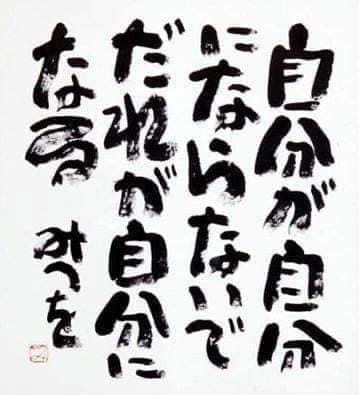 自分が自分
にならないで
だれが自分に
なる
みつを